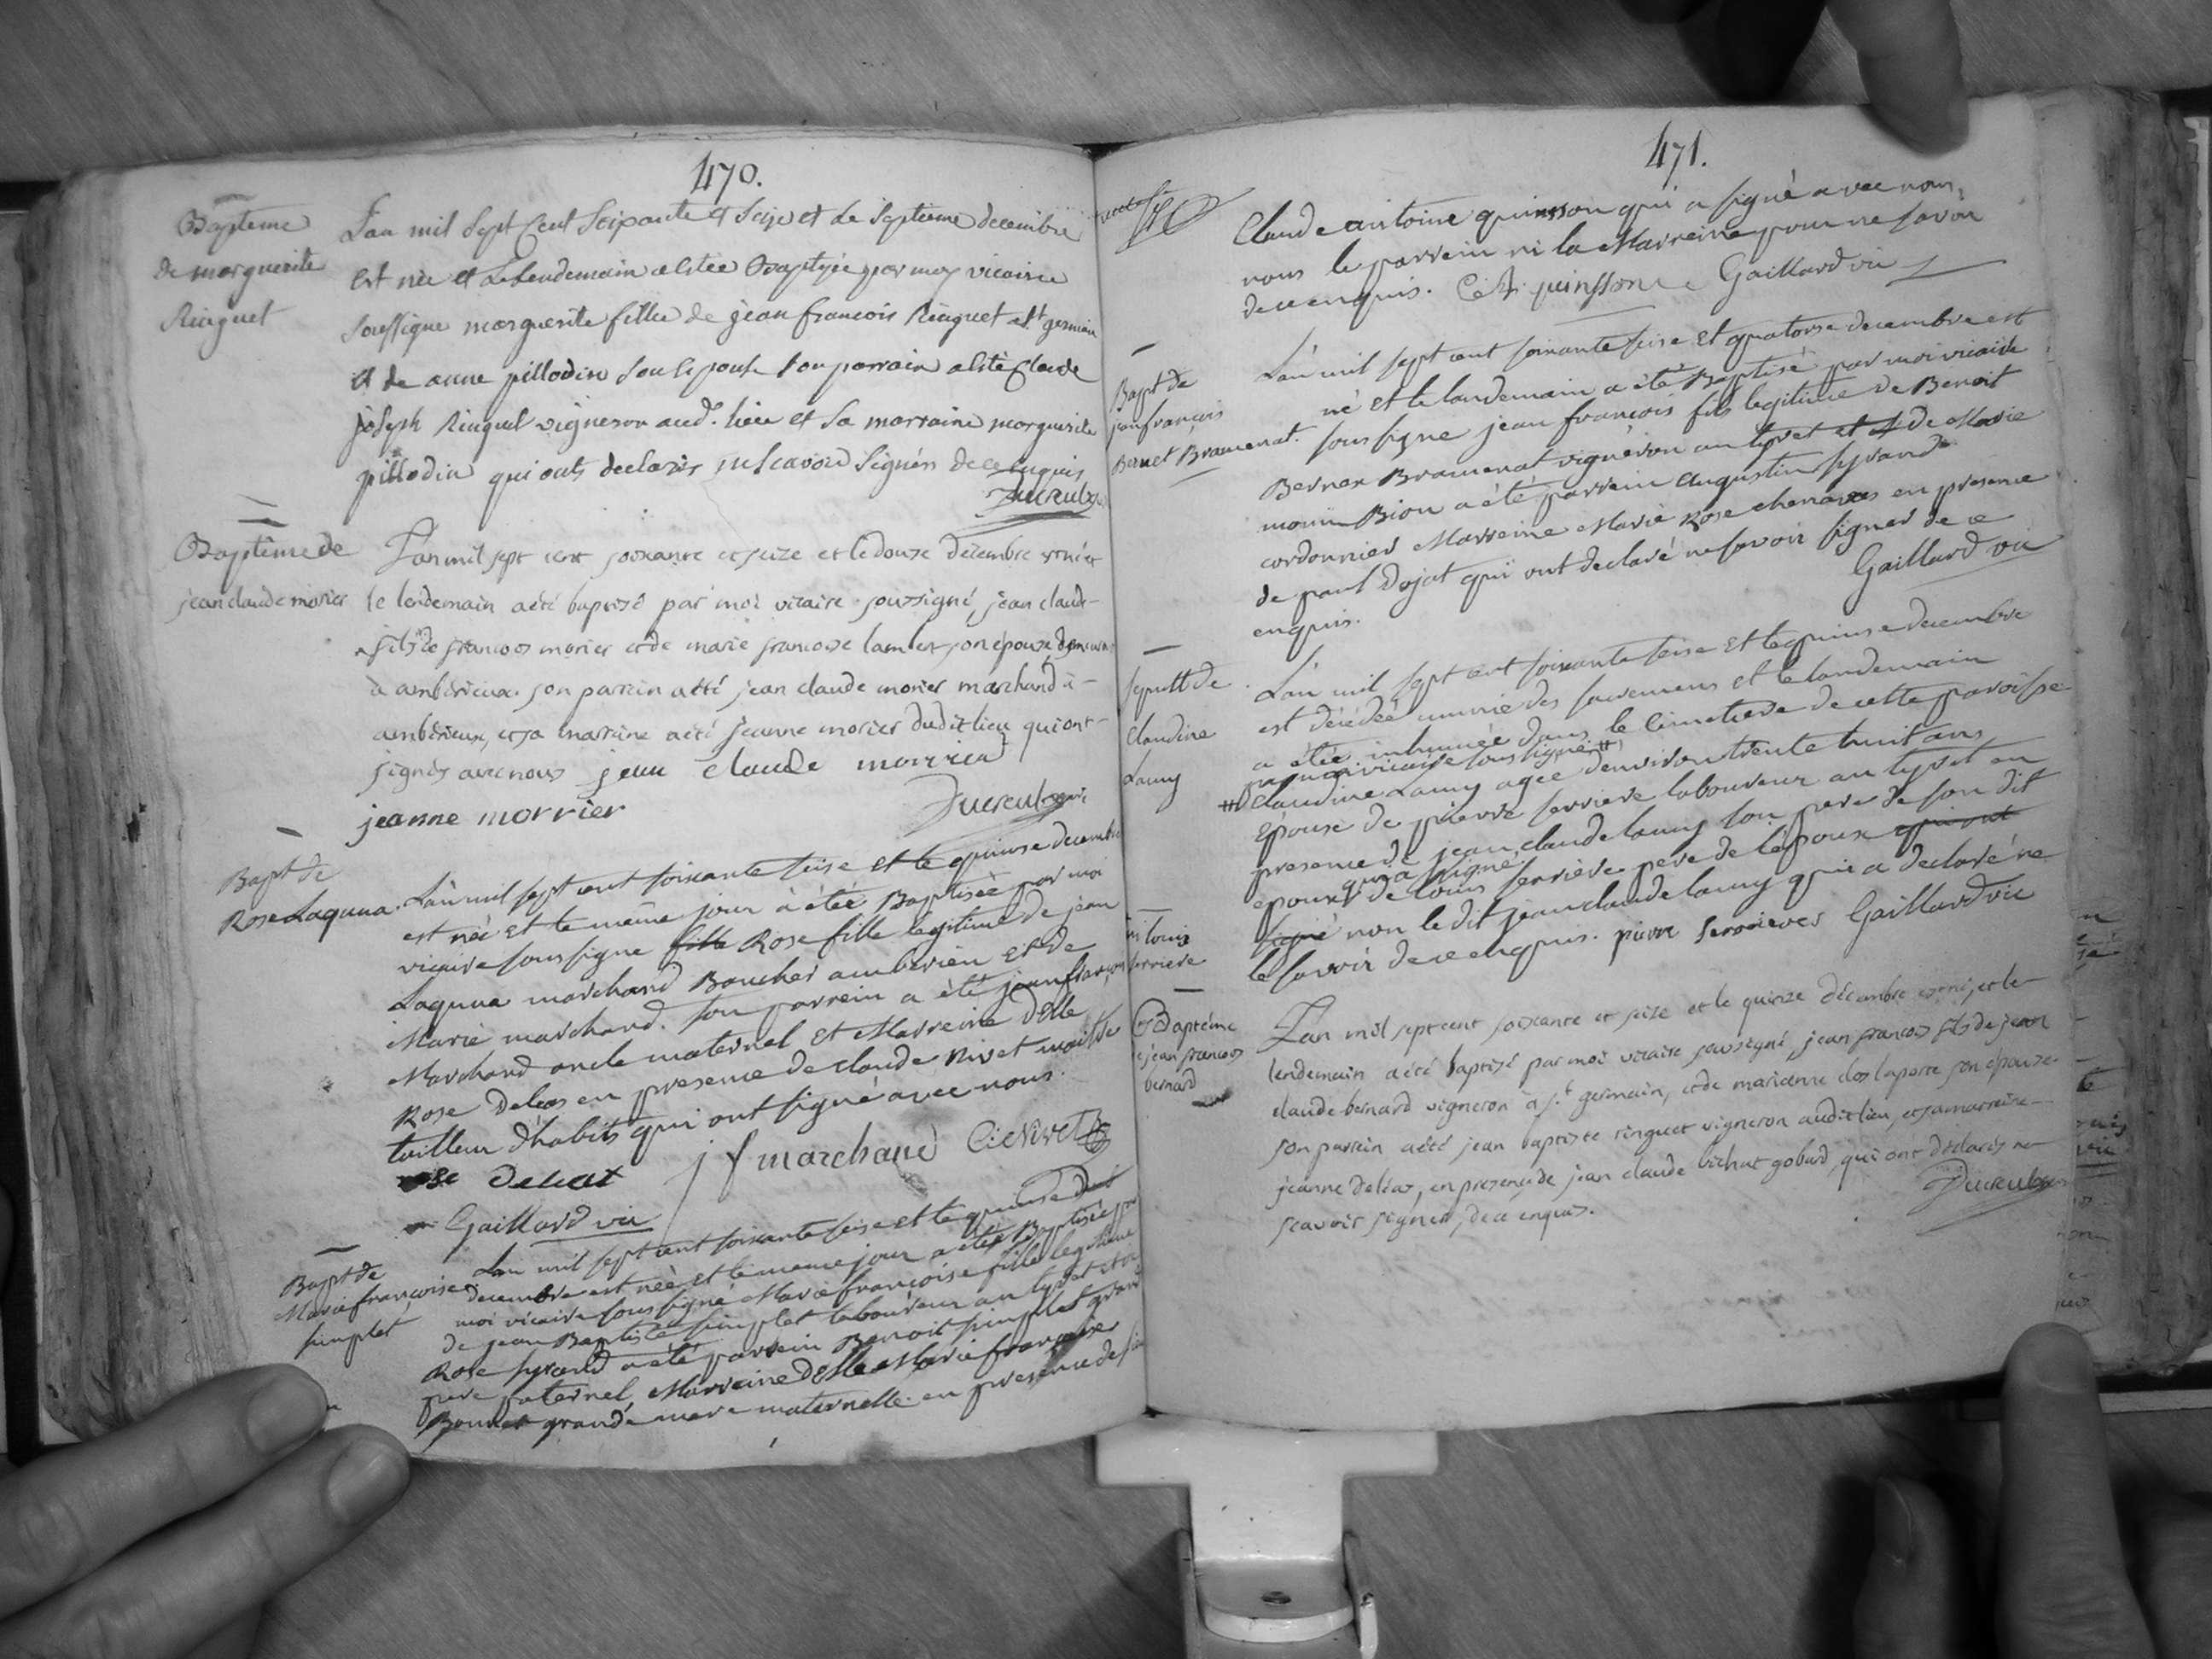 470.
Bapteme
de marguerite
Ringuet
L'an mil Sept Cent Seixante et Seize et le Septieme decembre
est née et Le lendemain a estée Baptizée par moy vicaire
soussigne marguerite fille de jean francois Ringuet a St germain
et de anne pillodin son epouse son parrain a esté Claude
joseph Ringuet vigneron aud. lieu et sa marraine marguerite
pillodin qui onts declarés ne scavoir signer de ce enquis
Ducreulx
Baptême de
jean claude morier
L'an mil sept cent soixante et seize et le douze décembre est né et
le lendemain a été baptisé par moi vicaire soussigné, jean claude
fils de francois morier et de marie francoise lambert son épouse demeurant
à ambérieux. son parrein a été jean claude morier marchand à
ambérieux, et sa marraine a été jeanne morier dudit lieu qui ont
signés avec nous jean claude morrier
jeanne morrier
Ducreulx vic
Bapt de
Rose Laguna.
L'an mil sept cent soixante seise et le quinse decembre
est néé et le même jour a étéé Baptiséé par moi
vicaire soussigne fille Rose fille legitime de jean
Laguna marchand Boucher amberieu et de
Marie marchand. son parrein a été jean francois
Marchand oncle maternel et Marreine Delle
Rose Deleas en presence de claude Nivet maitre
tailleur d'habits qui ont signé avec nous.
rose Deleat j f marchand C. Nivet
Gaillard vic
Bapt de
Marie françoise
simplet
L'an mil sept cent soixante seise et le quinse dud
decembre est néé et le meme jour a étéé Baptiséé par
moi vicaire soussigné Marie françoise fille legitime
de jean Baptiste simplet laboureur au tyret et de
Rose syrand a été parrein Benoit simplet grand
pere paternel, Marreine Delle Marie françoise
Bonnet grande mere maternelle en presence de
471.
Claude antoine quinsson qui a signé avec nous,
nous le parrein ni la Marreine pour ne savoir
de ce enquis. C. A. quinsson Gaillard vic
Bapt de
jean françois
Bernet Bramerat.
L'an mil sept cent soixante seise et quatorse decembre est
né et le landemain a été Baptisé par moi vicaire
soussigne jean françois fils legitime de Benoit
Bernet Bramerat vigneron au tyret et de Marie
monin Bion a été parrein augustin syrand
cordonnier Marreine Marie Rose chenavas en presence
de paul Dojat qui ont declaré ne savoir signer de ce
enquis. Gaillard vic
sepult de
claudine
Lamy
L'an mil sept cent soixante seise et le quinse decembre
est décédéé munie des sacremens et le landemain
a étéé inhuméé dans le cimetiere de cette paroisse
par moi vicaire soussigné #
# Claudine Lamy agée d'environ trente huit ans
épouse de pierre serriere laboureur au tyret en
presence de jean claude lamy son pere de son dit
époux et de louis serriere pere de l'époux qui ont
qui a signé
signé non le dit jean claude lamy qui a declaré ne
le savoir de ce enquis. pierre serrieres Gaillard vic
louis
serriere
Baptême
de jean francois
bernard
L'an mil sept cent soixante et seize et le quinze décembre est né, et le
lendemain a été baptisé par moi vicaire soussigné, jean francois fils de jean
claude bernard vigneron à St germain, et de marianne clos laporte son épouse
son parrein a été jean baptiste ringuet vigneron audit lieu, et sa marreine
jeanne deléas, en presence de jean claude bichat gobard, qui ont déclarés ne
scavoir signer, de ce enquis. Ducreulx